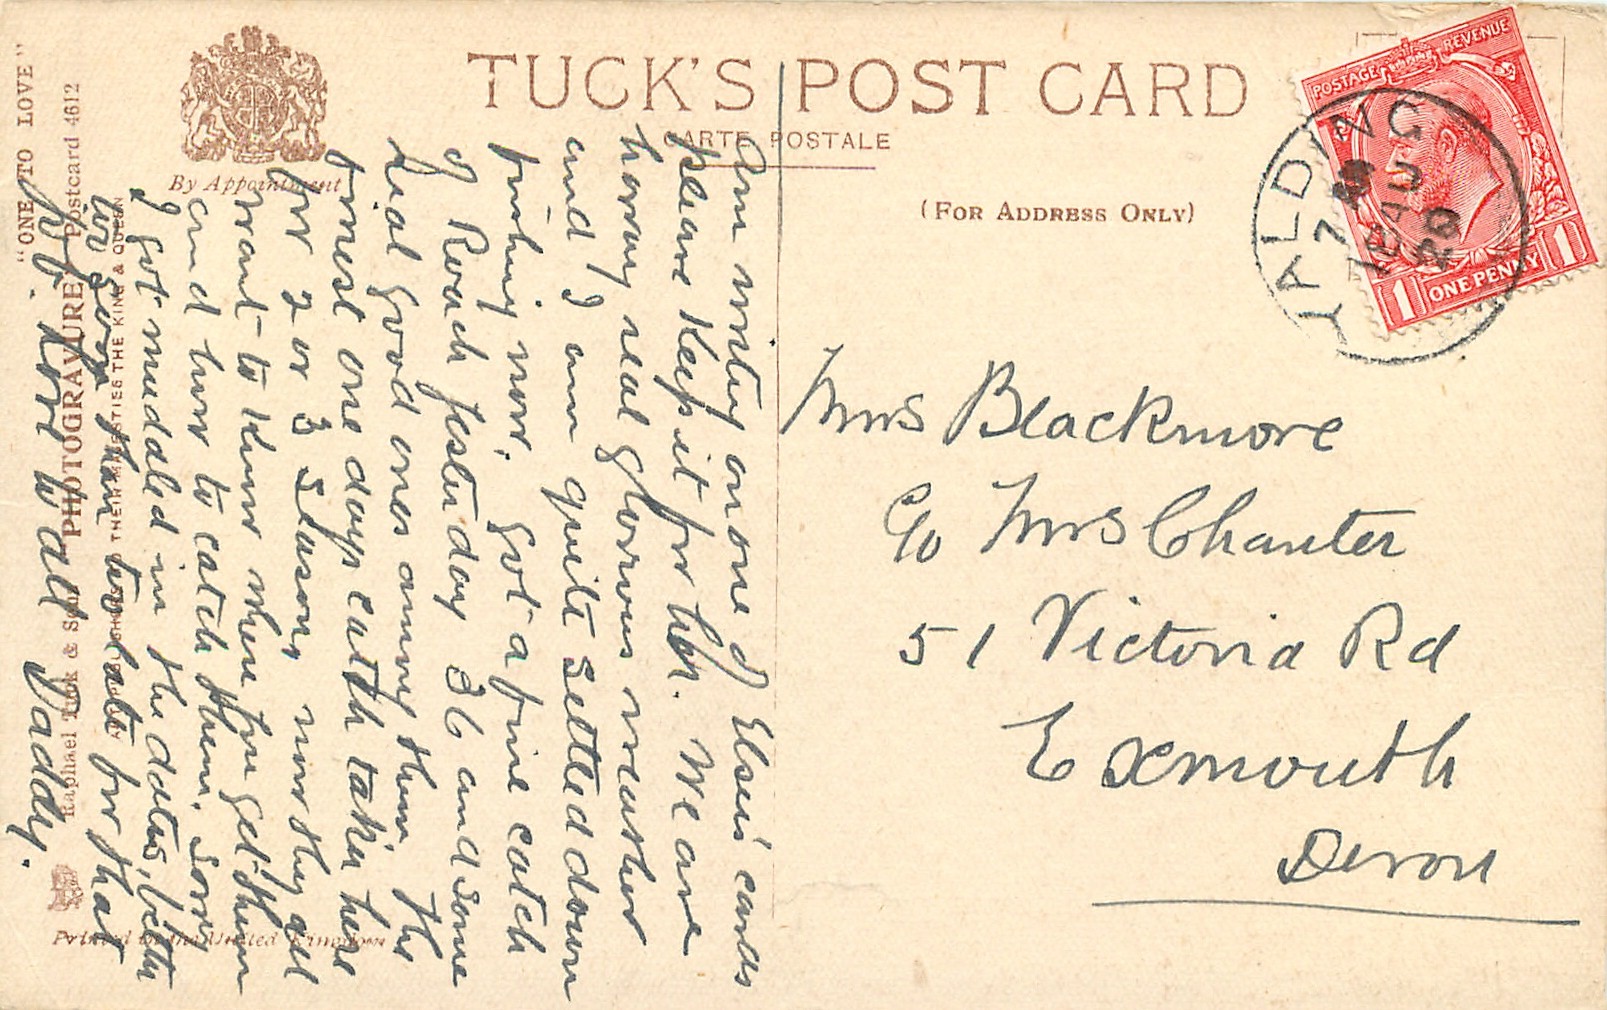 TUCK'S POST CARD
CARTE POSTALE
(FOR ADDRESS ONLY)
By Appointment
POSTAGE REVENUE
1 ONE PENNY 1
YALDING
7
16 AU
26
Mrs Blackmore
C/o Mrs Chanter
51 Victoria Rd
Exmouth
Devon
Am writing on one of Elsie's cards
please keep it for her. We are
having real glorious weather
and I am quite settled down
fishing now. Got a fine catch
of Roach yesterday 36 and some
real good ones among them the
finest one days catch taken here
for 2 or 3 seasons now they all
want to know where you get them
and how to catch them. Sorry
I got muddled in the dates, better
too soon than too late for that
job. Love to all Daddy.
"ONE TO LOVE"
Postcard 4612
Raphael Tuck & Sons' "PHOTOGRAVURE"
THEIR MAJESTIES THE KING & QUEEN
Printed in the United Kingdom